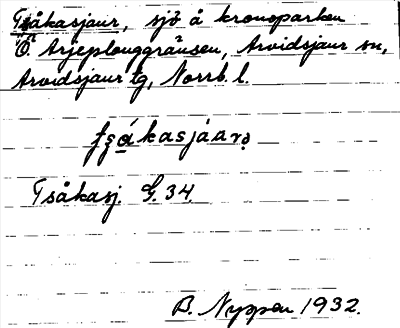 Tsåkasjaur, sjö å kronoparken
Ö. Arjeplouggränsen, Arvidsjaur sn,
Arvidsjaur tg, Norrb. l.
Tsåkasj. G. 34
B. Nyppen 1932.